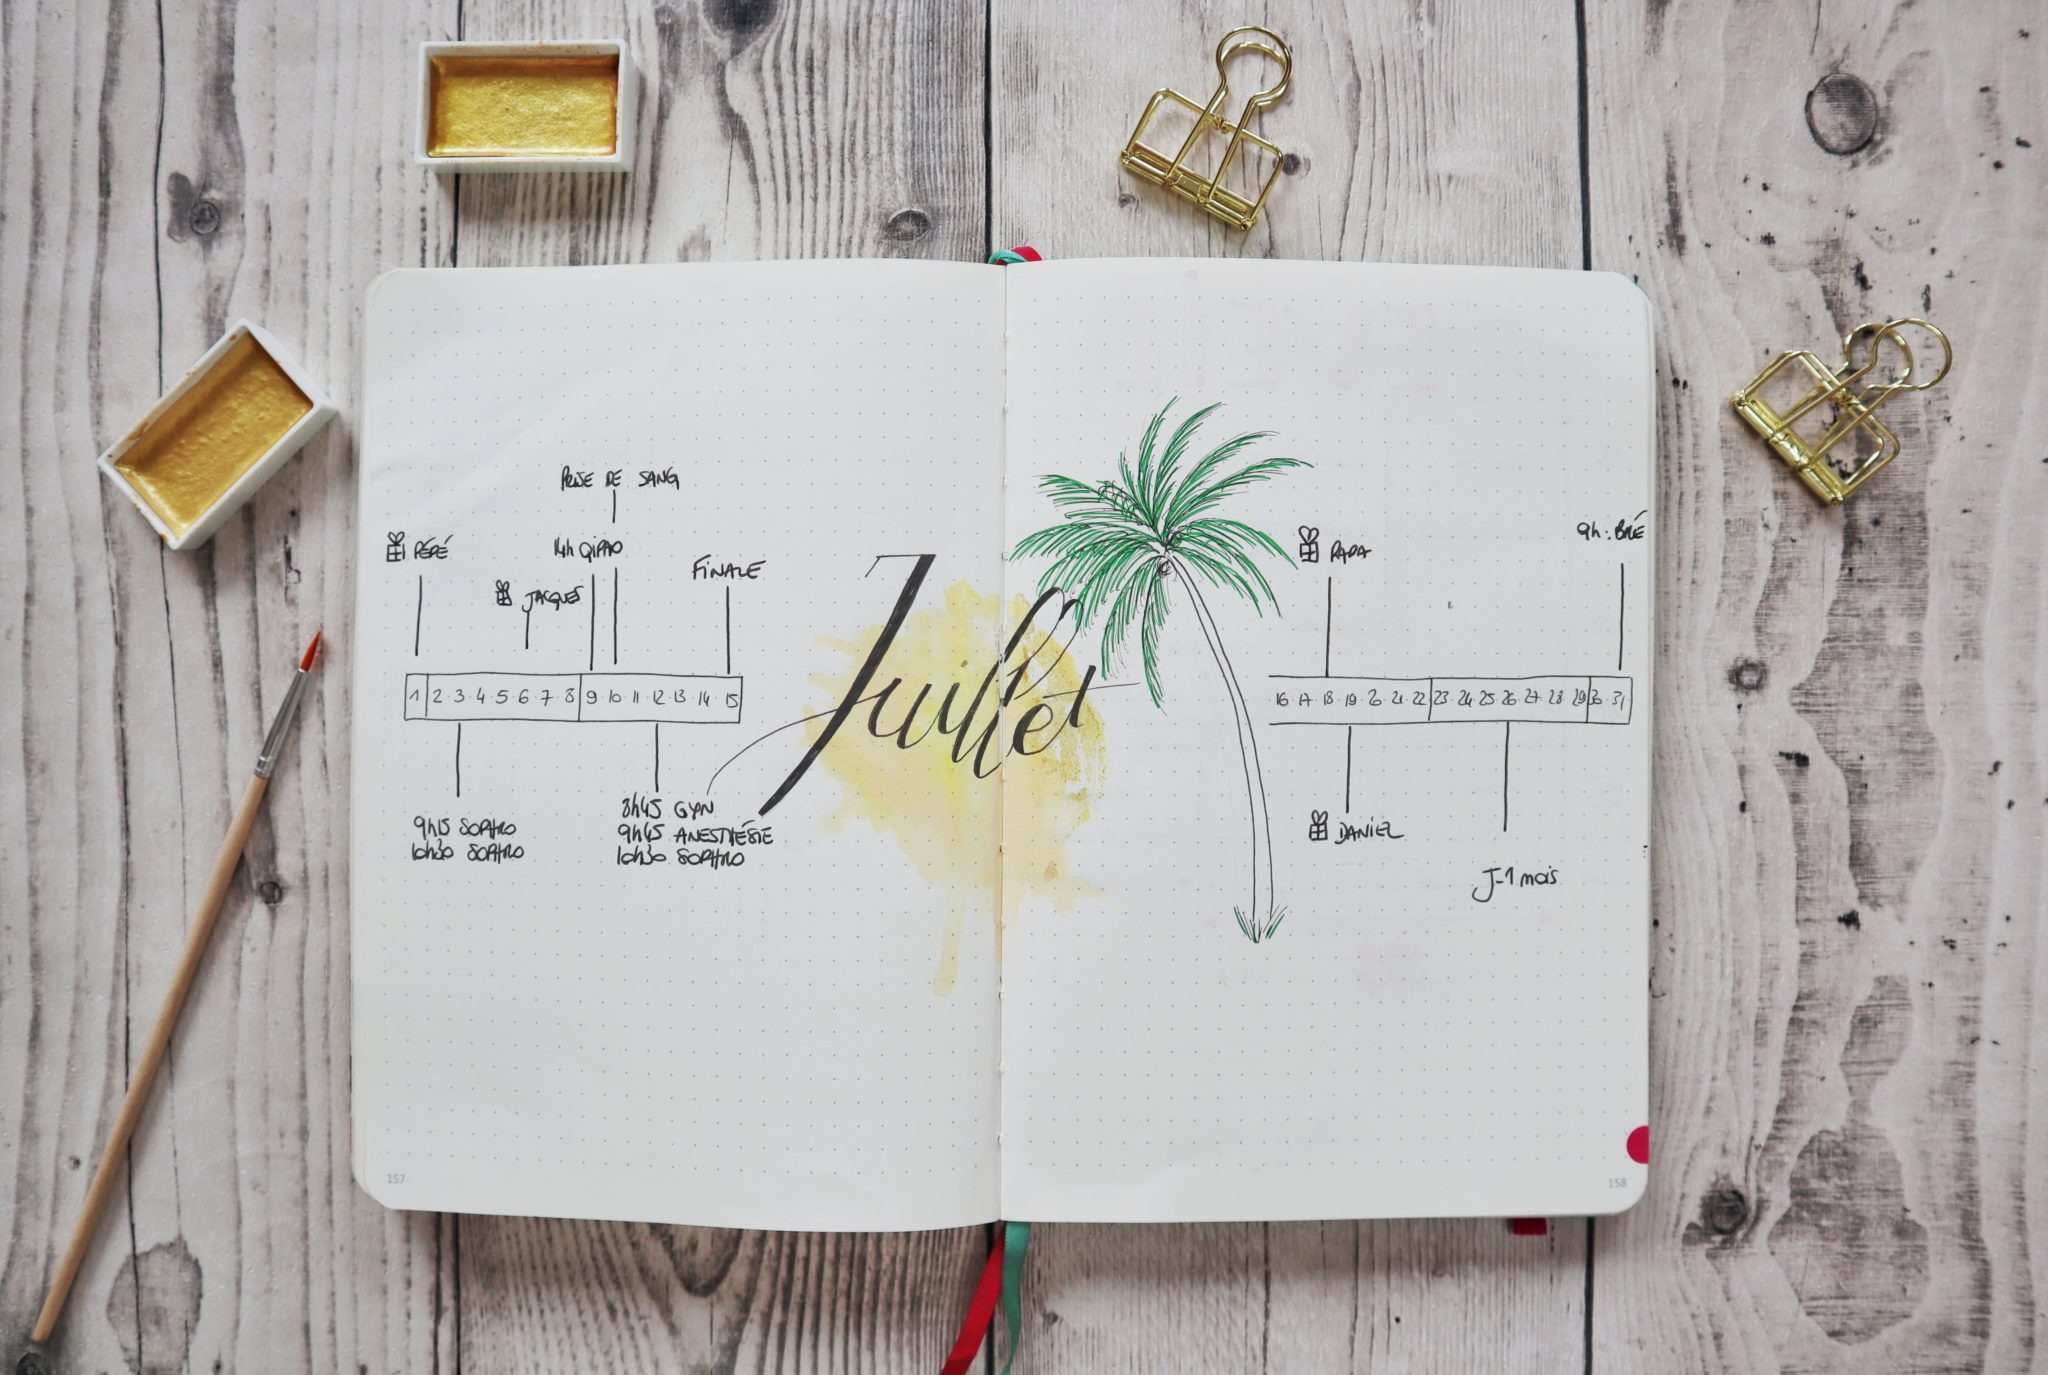 PRISE DE SANG
PÉPÉ
14h QIPAO
FINALE
JACQUES
1 2 · 3 · 4 · 5 · 6 · 7 · 8 9 · 10 · 11 · 12 · 13 · 14 · 15
9h15 SOPHRO
10h30 SOPHRO
8h45 GYN
9h45 ANESTHÉSIE
10h30 SOPHRO
Juillet
9h : BRÉ
PAPA
16 · 17 · 18 · 19 · 20 · 21 · 22 23 · 24 · 25 · 26 · 27 · 28 · 29 30 · 31
DANIEL
J-1 mois
157
158